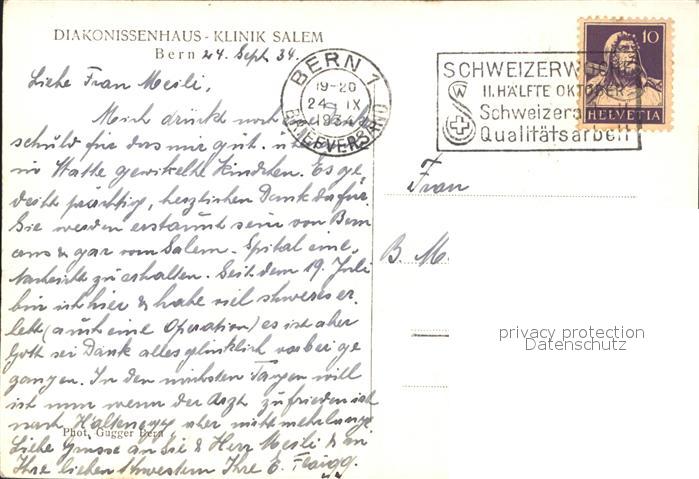 DIAKONISSENHAUS - KLINIK SALEM
Bern 24. Sept. 34.
Liebe Frau Meili,
Mich drückt noch
schuld für das mir gut.
in Watte gewikelte Kindchen. Es ge
deiht prächtig, herzlichen Dank dafür.
Sie werden erstaunt sein von Bern
aus & gar vom Salem-Spital eine
Nachricht zu erhalten. Seit dem 19. Juli
bin ich hier & habe viel schweres er
lebt (auch eine Operation) es ist aber
Gott sei Dank alles glücklich vorbei ge
gangen. In den nächsten Tagen will
ich nun wenn der Arzt zufrieden ist
nach aber nicht mehr lange.
Phot. Gugger Bern
Liebe Grüsse an Sie & Herr Meili & an
Ihre lieben Schwestern Ihre E. Flügg.
BERN 1
19-20
24 IX
1934
BRIEFVERSAND
SCHWEIZERWOCHE
II. HÄLFTE OKTOBER
Schweizerart
Qualitätsarbeit
10
HELVETIA
Frau
B. M
privacy protection
Datenschutz